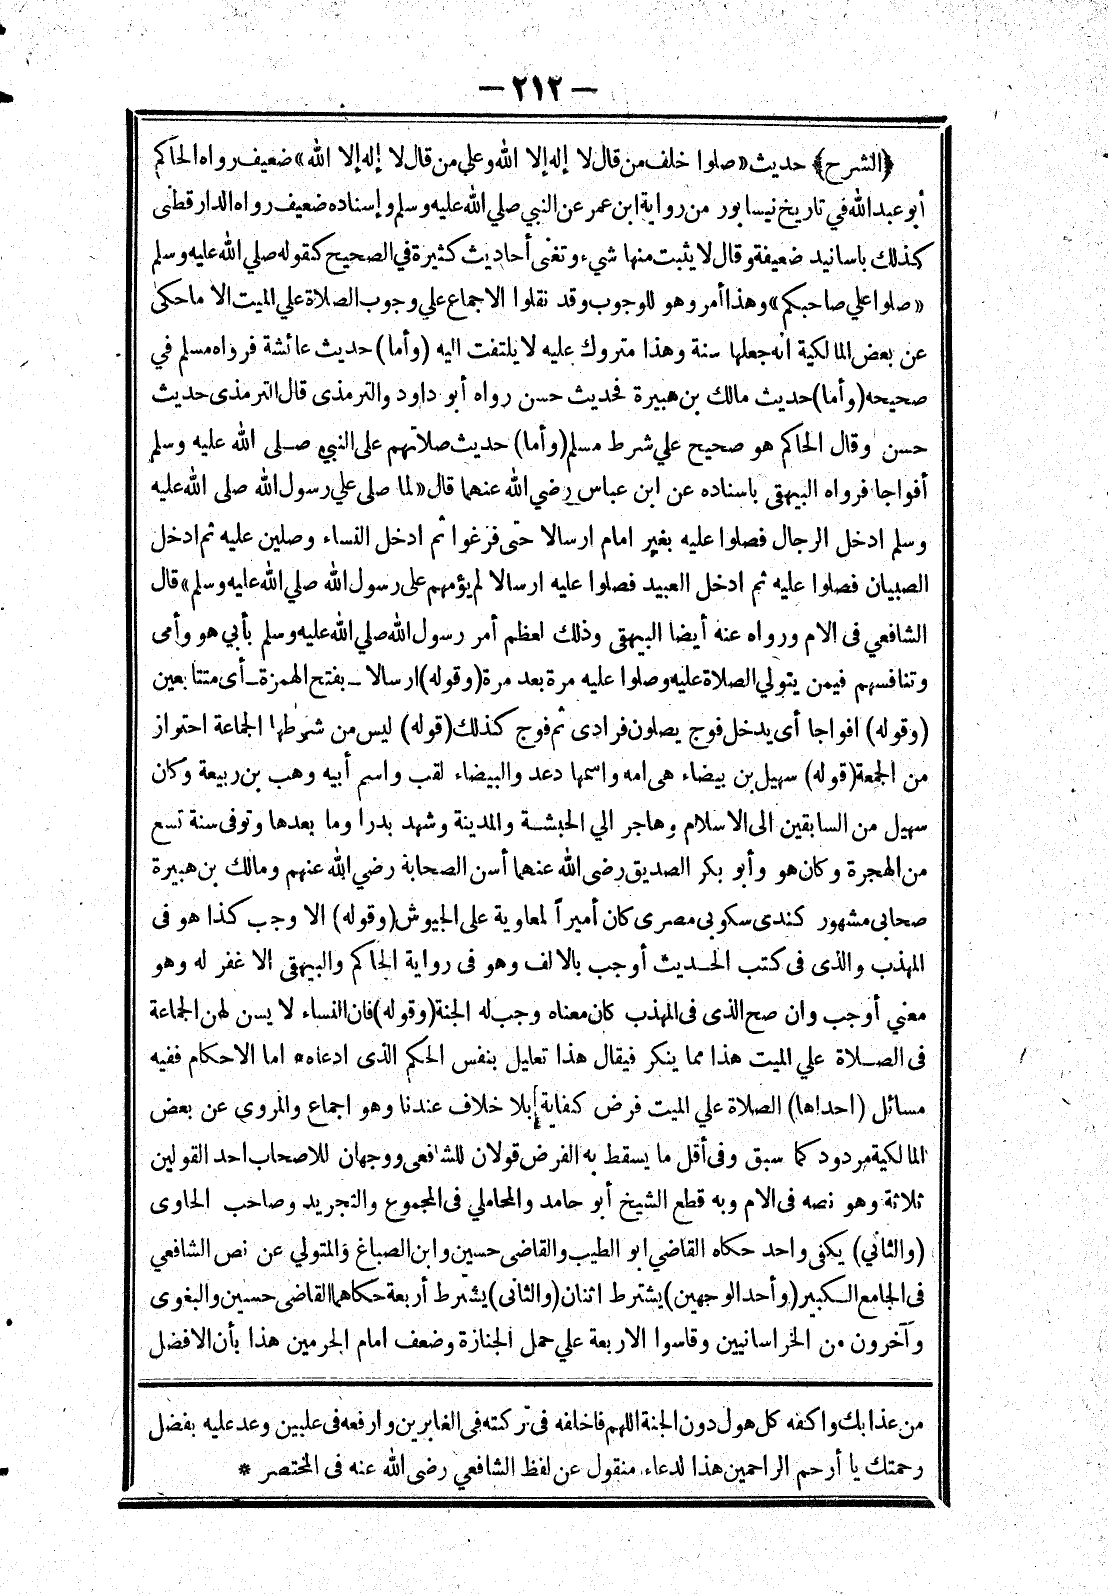 — ٢١٢ —
﴿الشرح﴾ حديث «صلوا خلف من قال لا إله إلا الله وعلي من قال لا إله إلا الله» ضعيف رواه الحاكم
أبو عبد الله في تاريخ نيسابور من رواية ابن عمر عن النبي صلي الله عليه وسلم وإسناده ضعيف رواه الدارقطنى
كذلك باسانيد ضعيفة وقال لا يثبت منها شيء وتغنى أحاديث كثيرة في الصحيح كقوله صلي الله عليه وسلم
«صلوا علي صاحبكم» وهذا أمر وهو للوجوب وقد نقلوا الاجماع علي وجوب الصلاة علي الميت الا ما حكى
عن بعض المالكية انه جعلها سنة وهذا متروك عليه لا يلتفت اليه (وأما) حديث عائشة فرواه مسلم في
صحيحه (وأما) حديث مالك بن هبيرة فحديث حسن رواه أبو داود والترمذى قال الترمذى حديث
حسن وقال الحاكم هو صحيح علي شرط مسلم (وأما) حديث صلاتهم على النبي صلى الله عليه وسلم
أفواجا فرواه البيهقى باسناده عن ابن عباس رضي الله عنهما قال «لما صلى علي رسول الله صلى الله عليه
وسلم ادخل الرجال فصلوا عليه بغير امام ارسالا حتى فرغوا ثم ادخل النساء وصلين عليه ثم ادخل
الصبيان فصلوا عليه ثم ادخل العبيد فصلوا عليه ارسالا لم يؤمهم على رسول الله صلي الله عليه وسلم» قال
الشافعي فى الام ورواه عنه أيضا البيهقى وذلك لعظم أمر رسول الله صلي الله عليه وسلم بأبي هو وأمى
وتنافسهم فيمن يتولي الصلاة عليه وصلوا عليه مرة بعد مرة (وقوله) ارسالا ـ بفتح الهمزة ـ أى متتابعين
(وقوله) افواجا أى يدخل فوج يصلون فرادى ثم فوج كذلك (قوله) ليس من شرطها الجماعة احتراز
من الجمعة (قوله) سهيل بن بيضاء هى امه واسمها دعد والبيضاء لقب واسم أبيه وهب بن ربيعة وكان
سهيل من السابقين الى الاسلام وهاجر الي الحبشة والمدينة وشهد بدرا وما بعدها وتوفى سنة تسع
من الهجرة وكان هو وأبو بكر الصديق رضى الله عنهما أسن الصحابة رضي الله عنهم ومالك بن هبيرة
صحابى مشهور كندى سكونى مصرى كان أميراً لمعاوية على الجيوش (وقوله) الا وجب كذا هو فى
المهذب والذى فى كتب الحديث أوجب بالالف وهو فى رواية الحاكم والبيهقى الا غفر له وهو
معني أوجب وان صح الذى فى المهذب كان معناه وجب له الجنة (وقوله) فان النساء لا يسن لهن الجماعة
فى الصلاة علي الميت هذا مما ينكر فيقال هذا تعليل بنفس الحكم الذى ادعاه* اما الاحكام ففيه
مسائل (احداها) الصلاة علي الميت فرض كفاية بلا خلاف عندنا وهو اجماع والمروى عن بعض
المالكية مردود كما سبق وفى أقل ما يسقط به الفرض قولان للشافعى ووجهان للاصحاب احد القولين
ثلاثة وهو نصه فى الام وبه قطع الشيخ أبو حامد والمحاملي فى المجموع والتجريد وصاحب الحاوى
(والثاني) يكفى واحد حكاه القاضي ابو الطيب والقاضى حسين وابن الصباغ والمتولي عن نص الشافعي
فى الجامع الكبير (وأحد الوجهين) يشترط اثنان (والثانى) يشترط أربعة حكاهما القاضى حسين والبغوى
وآخرون من الخراسانيين وقاسوا الاربعة علي حمل الجنازة وضعف امام الحرمين هذا بأن الافضل
من عذابك واكفه كل هول دون الجنة اللهم فاخلفه فى تركته فى الغابرين وارفعه فى عليين وعد عليه بفضل
رحمتك يا أرحم الراحمين هذا لدعاء منقول عن لفظ الشافعي رضى الله عنه فى المختصر *